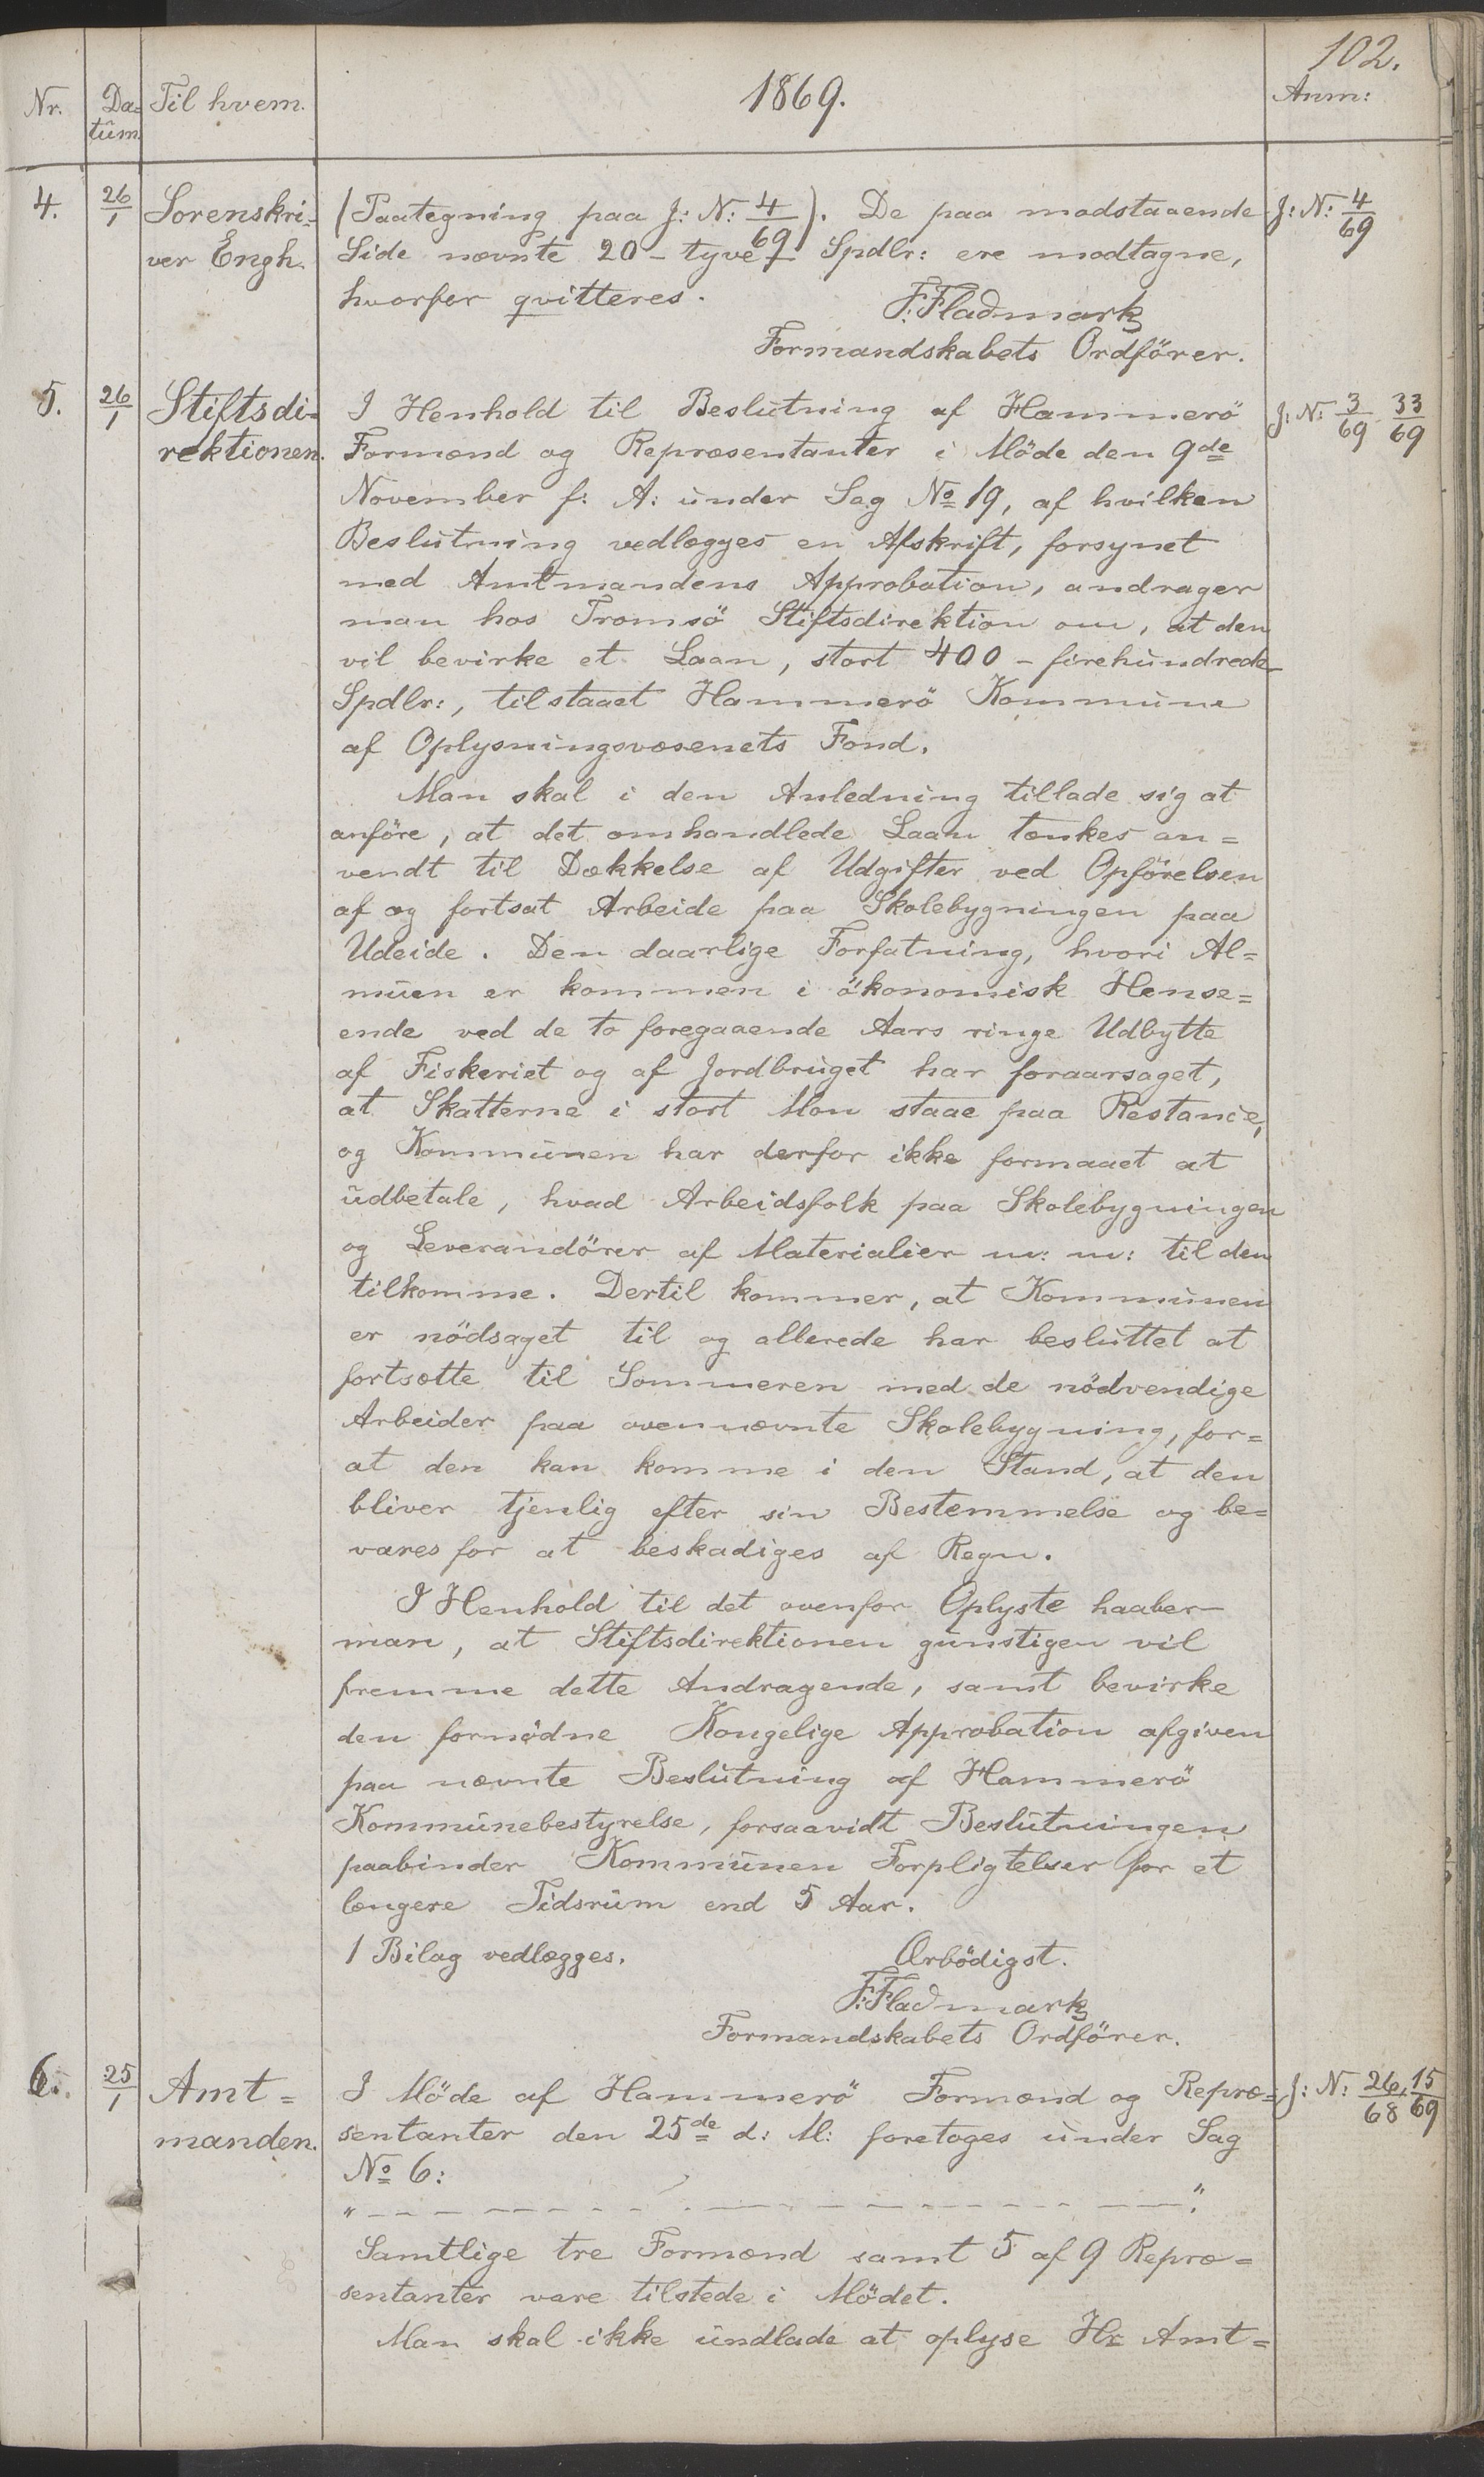 102.
Nr. Da= Til hvem. 1869. Anm:
tum.
4. 26/1 Sorenskri= (Paategning paa J: N: 4/69). De paa modstaaende J: N: 4/69
ver Engh. Side nævnte 20 - tyve - Spdlr: ere modtagne,
hvorfor qvitteres.
F. Fladmark
Formandskabets Ordförer.
5. 26/1 Stiftsdi= I Henhold til Beslutning af Hammerö J: N: 3/69 33/69
rektionen. Formænd og Repræsentanter i Möde den 9de
November f: A: under Sag No 19, af hvilken
Beslutning vedlægges en Afskrift, forsynet
med Amtmandens Approbation, andrager
man hos Tromsö Stiftsdirektion om, at den
vil bevirke et Laan, stort 400 - firehundrede
Spdlr:, tilstaaet Hammerö Kommune
af Oplysningsvæsenets Fond.
Man skal i den Anledning tillade sig at
anföre, at det omhandlede Laan tænkes an=
vendt til Dækkelse af Udgifter ved Opförelsen
af og fortsat Arbeide paa Skolebygningen paa
Udeide. Den daarlige Forfatning, hvori Al=
muen er kommen i ökonomisk Hense=
ende ved de to foregaaende Aars ringe Udbytte
af Fiskeriet og af Jordbruget har foraarsaget,
at Skatterne i stort Mon staae paa Restance,
og Kommunen har derfor ikke formaaet at
udbetale, hvad Arbeidsfolk paa Skolebygningen
og Leverandörer af Materialier m: m: til den
tilkomme. Dertil kommer, at Kommunen
er nödsaget til og allerede har besluttet at
fortsætte til Sommeren med de nödvendige
Arbeider paa ovennævnte Skolebygning, for=
at den kan komme i den Stand, at den
bliver tjenlig efter sin Bestemmelse og be=
vares for at beskadiges af Regn.
I Henhold til det ovenfor Oplyste haaber
man, at Stiftsdirektionen gunstigen vil
fremme dette Andragende, samt bevirke
den fornödne Kongelige Approbation afgiven
paa nævnte Beslutning af Hammerö
Kommunebestyrelse, forsaavidt Beslutningen
paabinder Kommunen Forpligtelser for et
længere Tidsrum end 5 Aar.
1 Bilag vedlægges. Ærbödigst.
F. Fladmark
Formandskabets Ordförer.
6. 25/1 Amt= I Möde af Hammerö Formænd og Repræ= J: N: 26/68, 15/69
manden. sentanter den 25de d: M: foretoges under Sag
No 6:
" - - - - - - - - - - - - - - - - ".
Samtlige tre Formænd samt 5 af 9 Repræ=
sentanter vare tilstede i Mödet.
Man skal ikke undlade at oplyse Hr Amt=